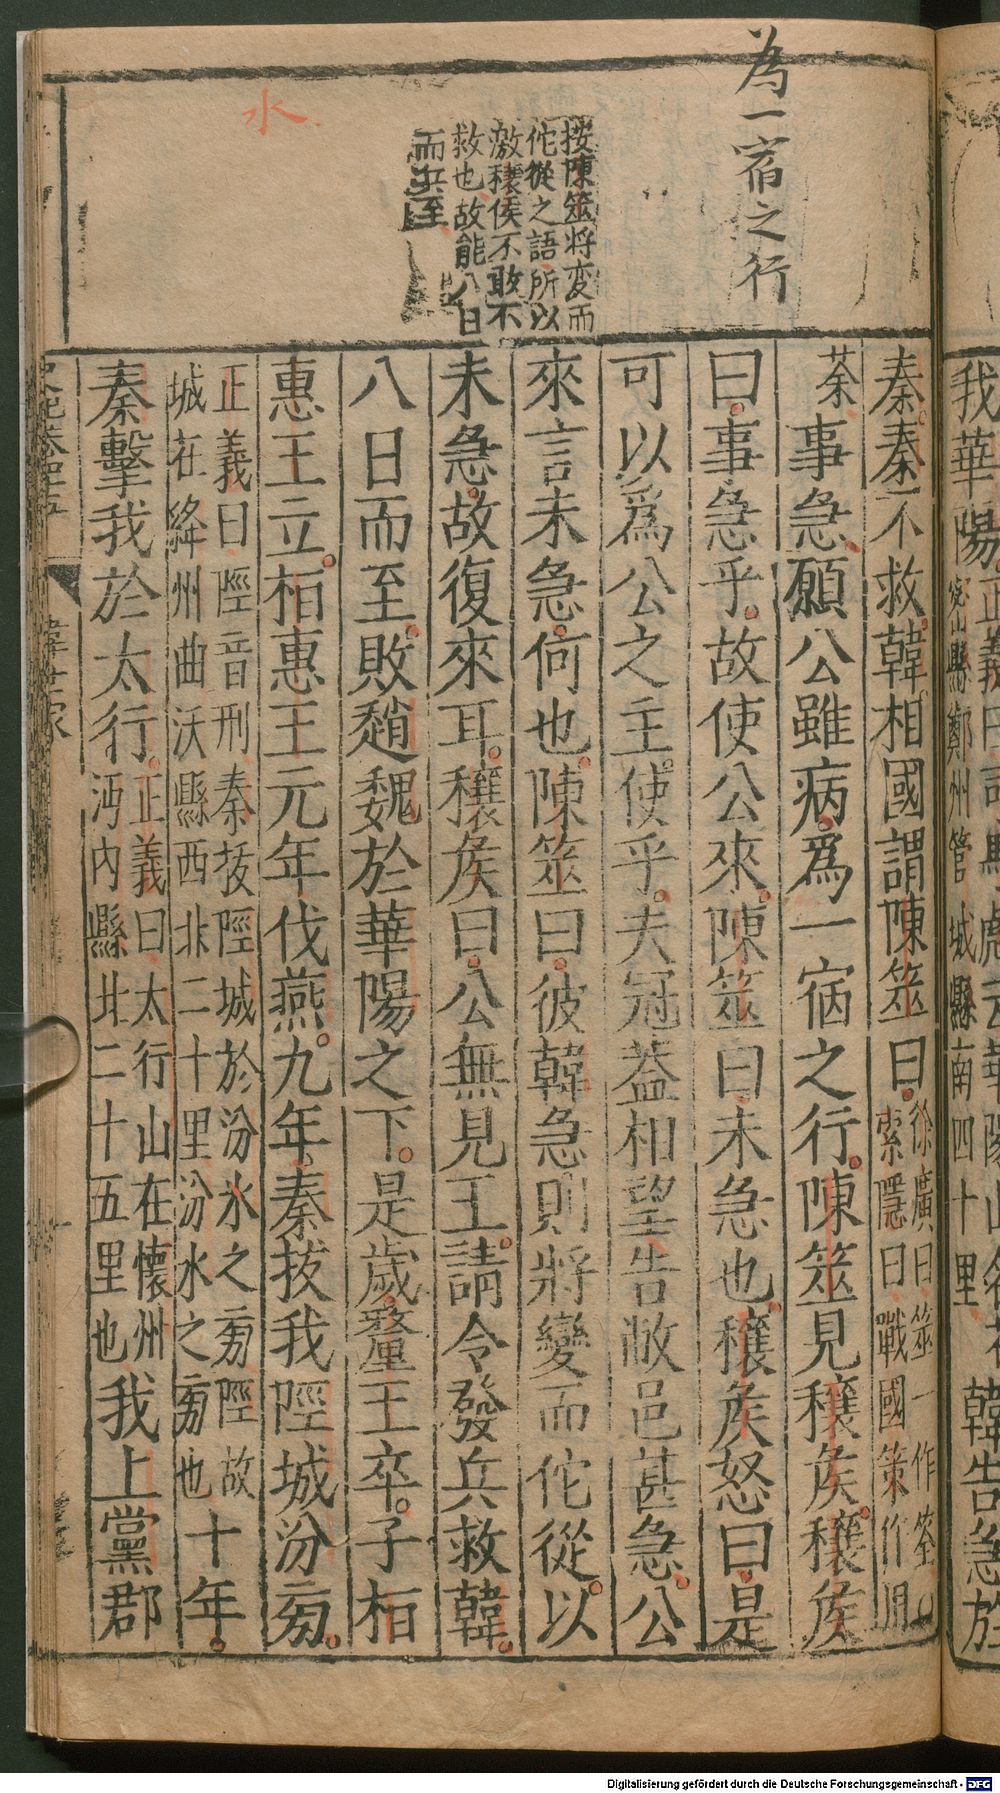 我華陽正義曰司馬彪云華陽山名在
密縣鄭州管城縣南四十里韓告急於
為一宿之行
按陳筮將変而
佗從之語所以
激穰侯不敢不
救也故能八日
而兵至
水
秦秦不救韓相國謂陳筮曰徐廣曰筮一作筌
索隱曰戰國策作田
荼事急願公雖病爲一宿之行陳筮見穰矦穰矦
曰事急乎故使公來陳筮曰未急也穰矦怒曰是
可以爲公之主使乎夫冠蓋相望告敝邑甚急公
來言未急何也陳筮曰彼韓急則將變而佗從以
未急故復來耳穰矦曰公無見王請令發兵救韓
八日而至敗趙魏於華陽之下是歲釐王卒子桓
惠王立桓惠王元年伐燕九年秦拔我陘城汾旁
正義曰陘音刑秦拔陘城於汾水之旁陘故
城在絳州曲沃縣西北二十里汾水之旁也十年
秦擊我於太行正義曰太行山在懷州
河內縣北二十五里也我上黨郡
韓世家
Digitalisierung gefördert durch die Deutsche Forschungsgemeinschaft - DFG